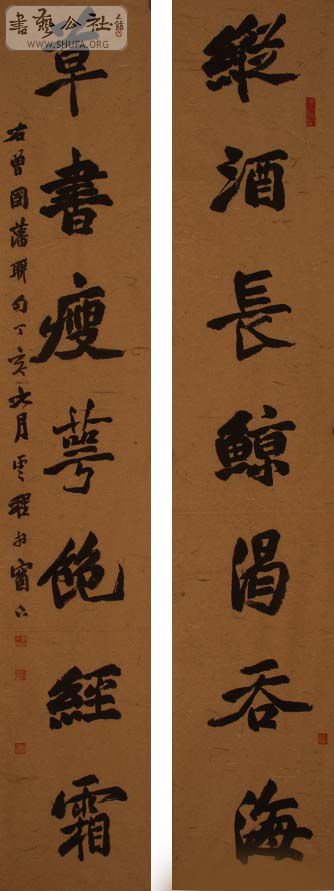 書藝公社
WWW.SHUFA.ORG
縱酒長鯨渴吞海
草書瘦萼飽經霜
右曾國藩聯句丁亥六月雲程於窗下